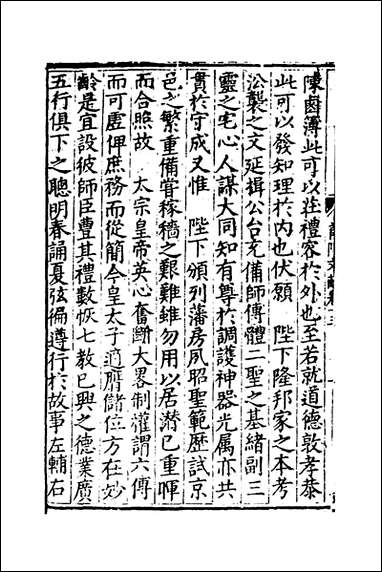 陳鹵簿此可以莊禮容於外也至若就道德敦孝恭
此可以發知理於內也伏願　陛下隆邦家之本考
㳂襲之文延揖公台充備師傅體二聖之基緒副三
靈之宅心人謀大同知有尊於調護神器光属亦共
貫於守成又惟　陛下頒列藩房夙昭聖範歷試京
邑之繁重備嘗稼穡之艱難雖勿用以居潛已重暉
而合照故　太宗皇帝英心奮斷大畧制權謂六傅
而可虛俾庶務而從簡今皇太子適膺儲位方在妙
齡是宜設彼師臣豊其禮數恢七教已興之德業廣
五行俱下之聰明春誦夏弦徧遵行於故事左輔右